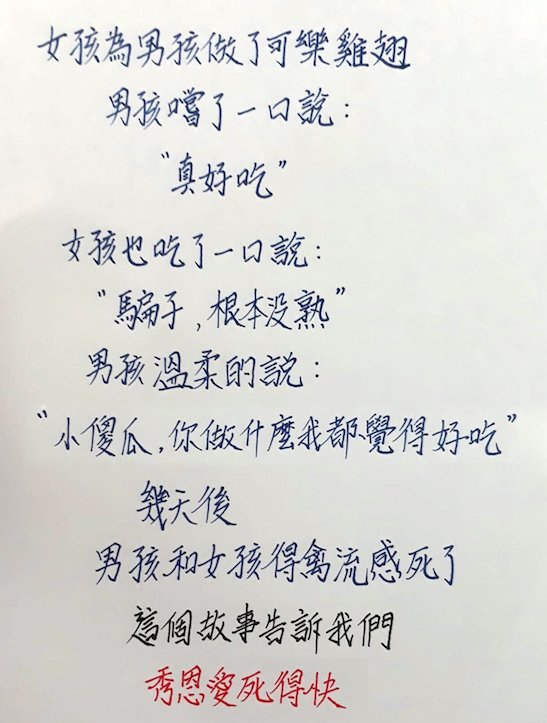 女孩為男孩做了可樂雞翅
男孩嚐了一口說：
"真好吃"
女孩也吃了一口說：
"騙子，根本没熟"
男孩溫柔的說：
"小傻瓜，你做什麼我都覺得好吃"
幾天後
男孩和女孩得禽流感死了
這個故事告訴我們
秀恩愛死得快